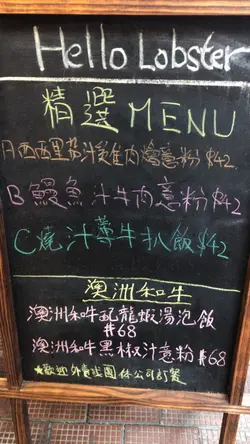 Hello Lobster
精選 MENU
A 西西里茄汁雞肉燴意粉 $42
B 鰻魚汁牛肉意粉 $42
C 燒汁薄牛扒飯 $42
澳洲和牛
澳洲和牛配龍蝦湯泡飯
$68
澳洲和牛黑椒汁意粉 $68
歡迎外賣 團体公司訂餐